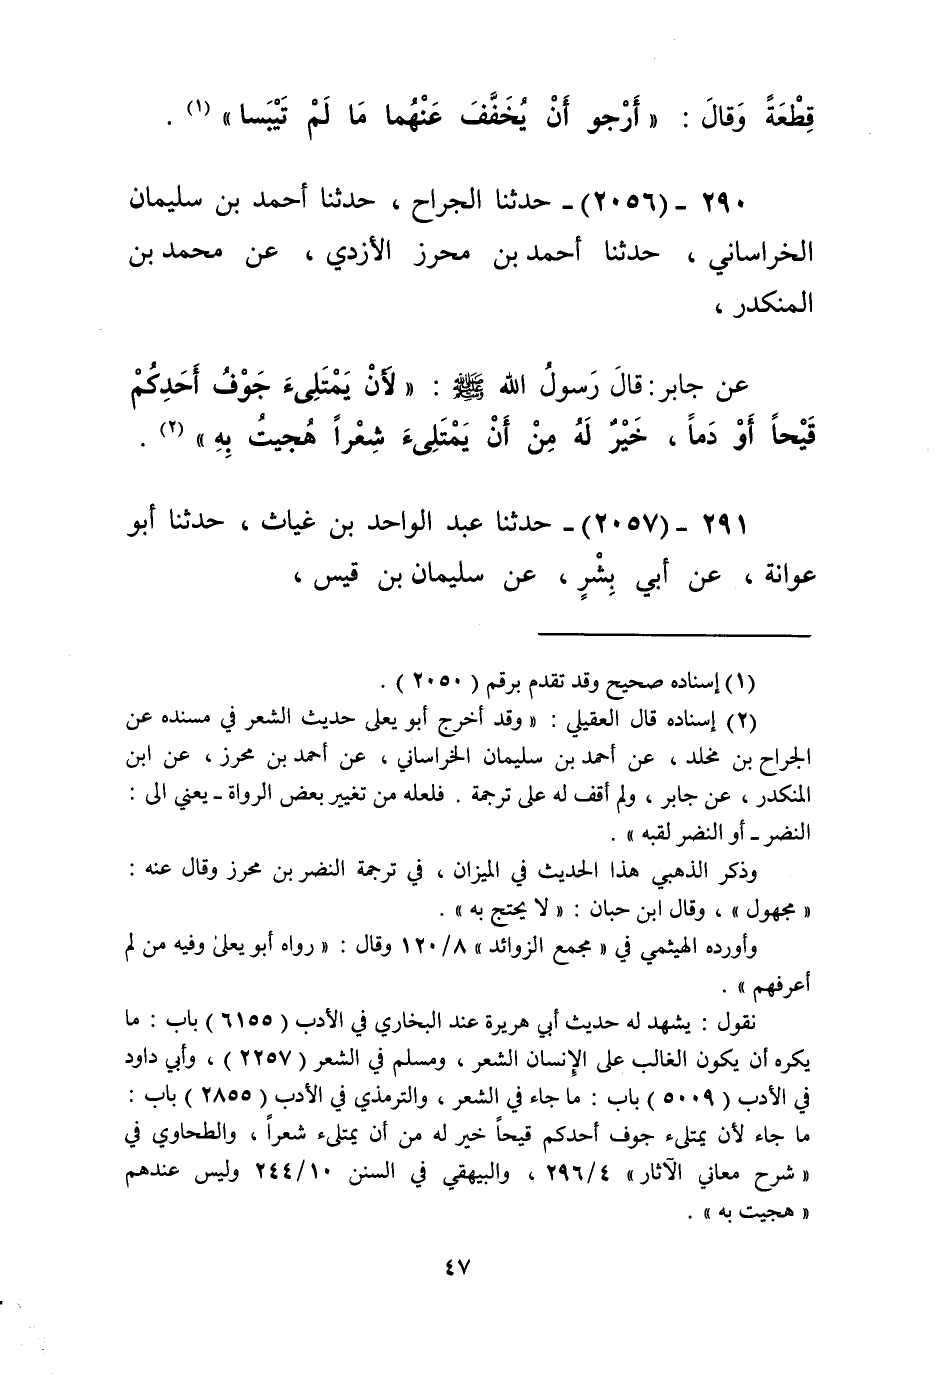 قِطْعَةً وَقالَ : « أَرْجو أَنْ يُخَفَّفَ عَنْهُما مَا لَمْ تَيْبَسا » (١) .
٢٩٠ ـ (٢٠٥٦) ـ حدثنا الجراح ، حدثنا أحمد بن سليمان
الخراساني ، حدثنا أحمد بن محرز الأزدي ، عن محمد بن
المنكدر ،
عن جابر : قالَ رَسولُ الله ﷺ : « لَأَنْ يَمْتَلِىءَ جَوْفُ أَحَدِكُمْ
قَيْحاً أَوْ دَماً ، خَيْرٌ لَهُ مِنْ أَنْ يَمْتَلِىءَ شِعْراً هُجيتُ بِهِ » (٢) .
٢٩١ ـ (٢٠٥٧) ـ حدثنا عبد الواحد بن غياث ، حدثنا أبو
عوانة ، عن أبي بِشْرٍ ، عن سليمان بن قيس ،
(١) إسناده صحيح وقد تقدم برقم ( ٢٠٥٠ ) .
(٢) إسناده قال العقيلي : « وقد أخرج أبو يعلى حديث الشعر في مسنده عن
الجراح بن مخلد ، عن أحمد بن سليمان الخراساني ، عن أحمد بن محرز ، عن ابن
المنكدر ، عن جابر ، ولم أقف له على ترجمة . فلعله من تغيير بعض الرواة ـ يعني الى :
النضر ـ أو النضر لقبه » .
وذكر الذهبي هذا الحديث في الميزان ، في ترجمة النضر بن محرز وقال عنه :
« مجهول » ، وقال ابن حبان : « لا يحتج به » .
وأورده الهيثمي في « مجمع الزوائد » ١٢٠/٨ وقال : « رواه أبو يعلىٰ وفيه من لم
أعرفهم » .
نقول : يشهد له حديث أبي هريرة عند البخاري في الأدب ( ٦١٥٥ ) باب : ما
يكره أن يكون الغالب على الإنسان الشعر ، ومسلم في الشعر ( ٢٢٥٧ ) ، وأبي داود
في الأدب ( ٥٠٠٩ ) باب : ما جاء في الشعر ، والترمذي في الأدب ( ٢٨٥٥ ) باب :
ما جاء لأن يمتلىء جوف أحدكم قيحاً خير له من أن يمتلىء شعراً ، والطحاوي في
« شرح معاني الآثار » ٢٩٦/٤ ، والبيهقي في السنن ٢٤٤/١٠ وليس عندهم
« هجيت به » .
٤٧